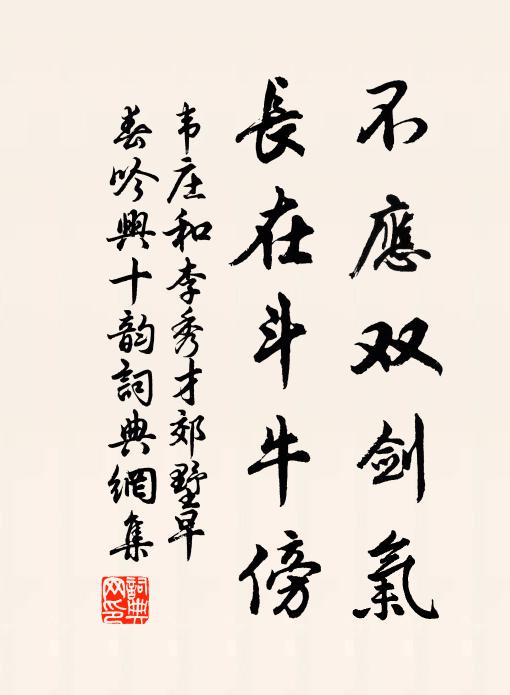 不應双剑氣
長在斗牛傍
韦庄和李秀才郊墅早
春吟興十韵詞典網集
詞典网印